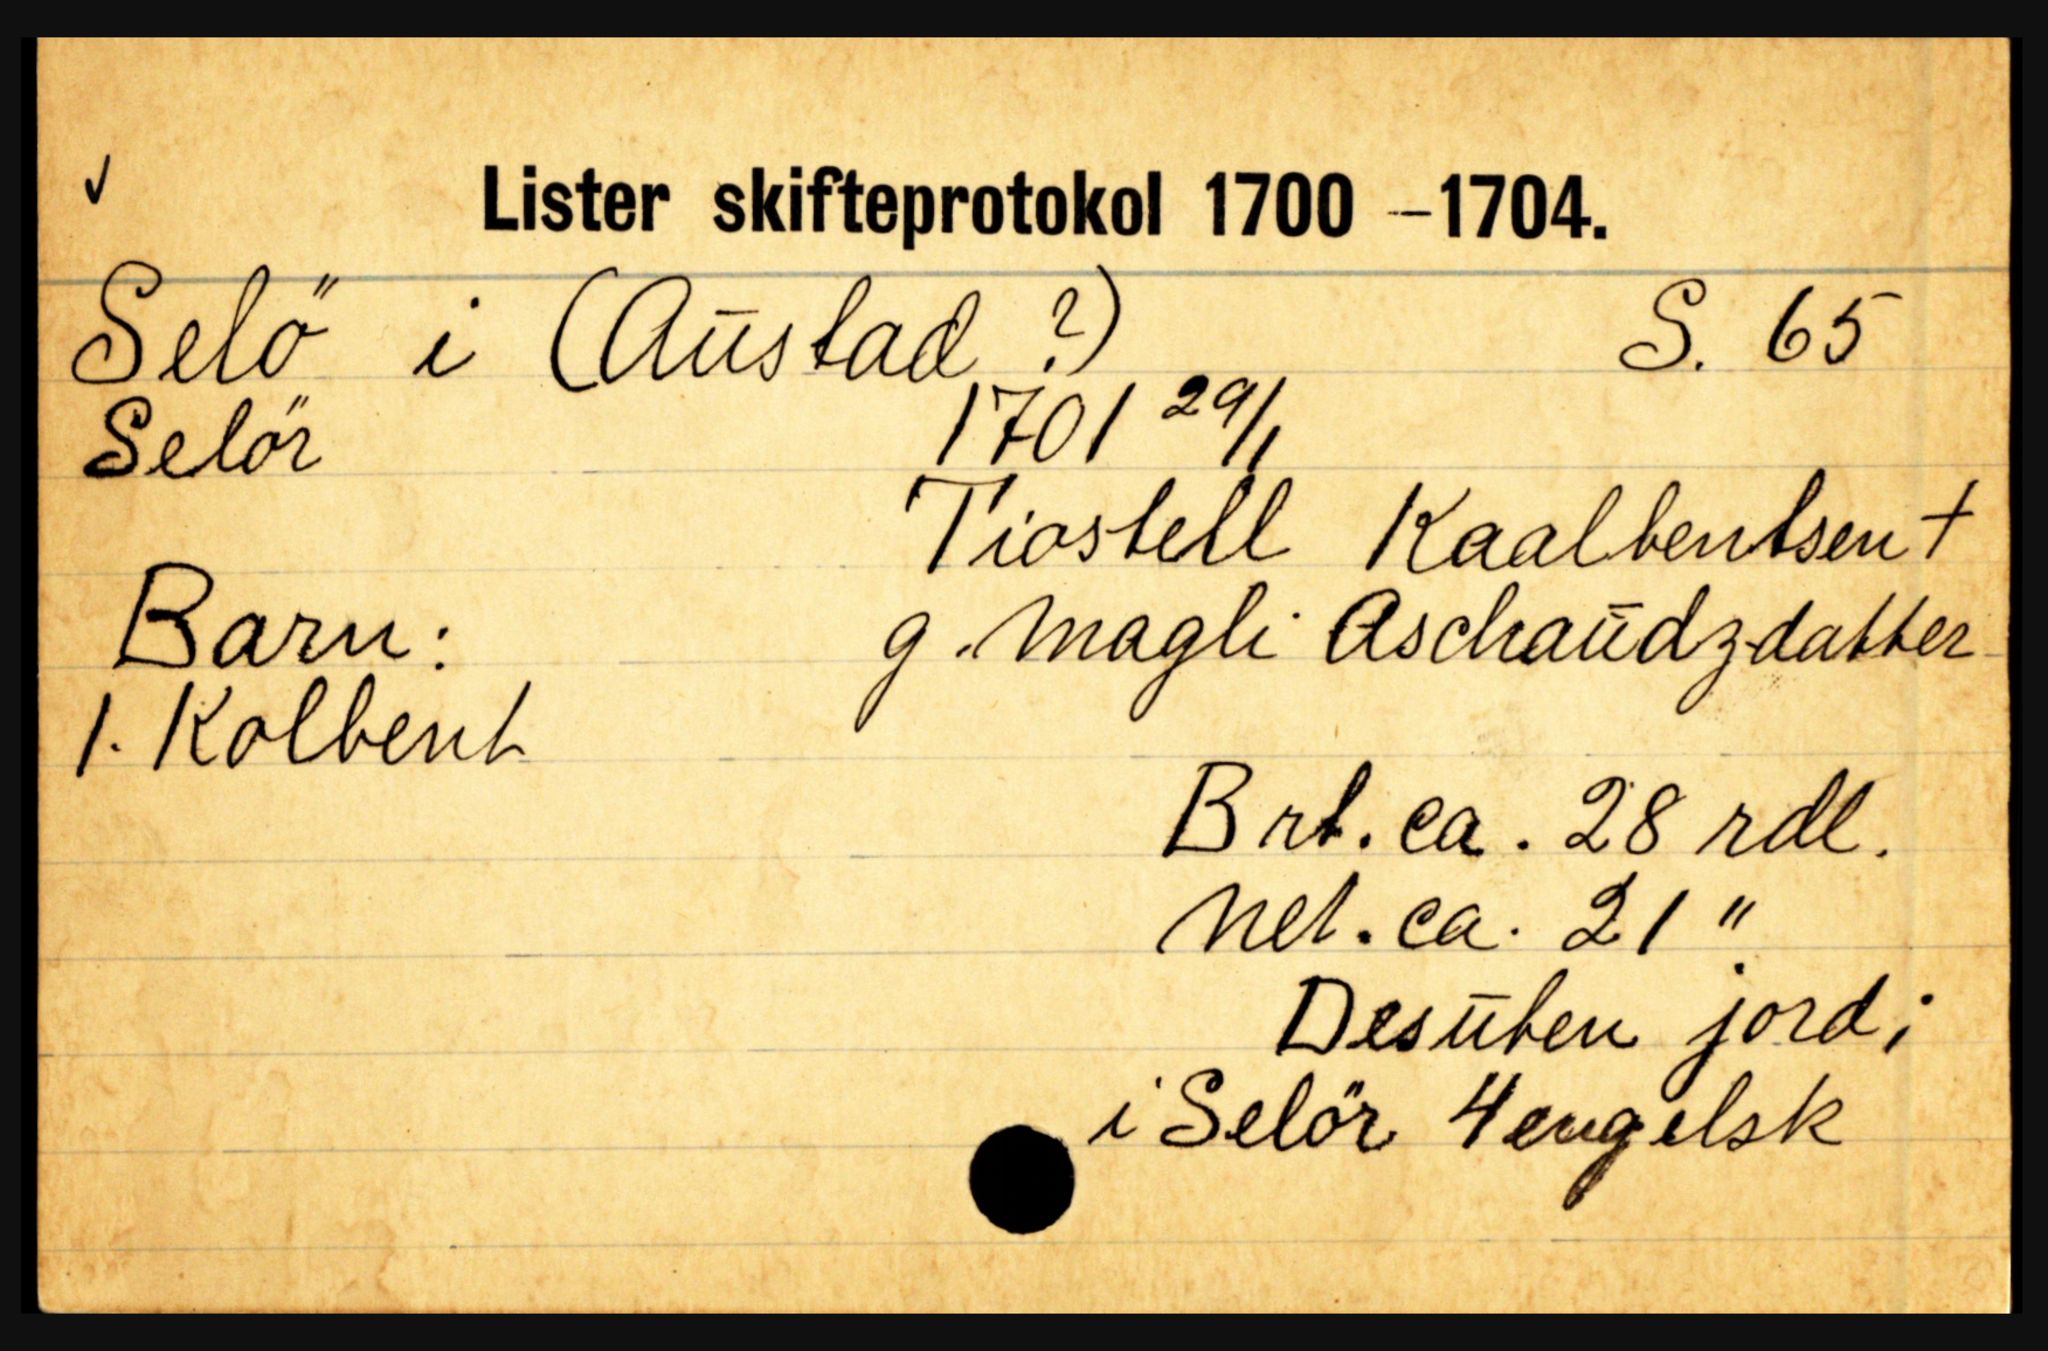 ✓ Lister skifteprotokol 1700 – 1704.
Selö i (Austad ?) S. 65
Selör 1701 29/1
Tiostell Kaalbentsen +
Barn: g. Magli Aschaudzdatter
1. Kolbent
Brt. ca. 28 rdl.
Net. ca. 21 "
Desuten jord;
i Selör 4 engelsk